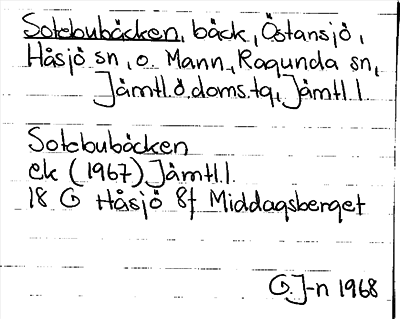 Sotebubäcken, bäck, Östansjö,
Håsjö sn, o. Mann, Ragunda sn,
Jämtl. ö. doms. tg, Jämtl. l.
Sotebubäcken
ek (1967) Jämtl. l.
18 G Håsjö 8f Middagsberget
G. J-n 1968